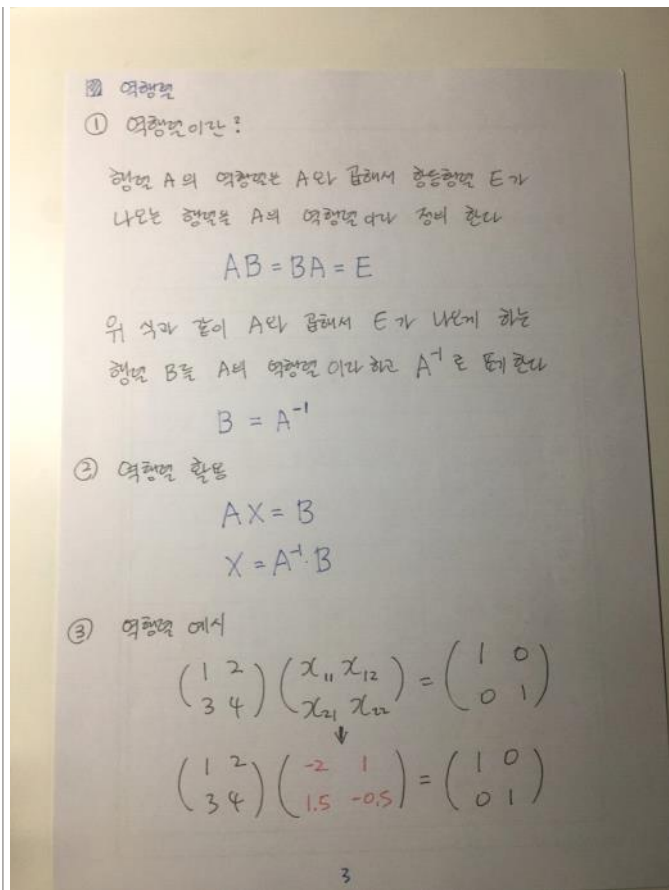 역행렬
① 역행렬이란?
행렬 A의 역행렬은 A와 곱해서 항등행렬 E가
나오는 행렬을 A의 역행렬이라 정의 한다
AB = BA = E
위 식과 같이 A와 곱해서 E가 나오게 하는
행렬 B를 A의 역행렬 이라 하고 A⁻¹로 표기 한다
B = A⁻¹
② 역행렬 활용
AX = B
X = A⁻¹·B
③ 역행렬 예시
(1 2) (x₁₁ x₁₂) = (1 0)
(3 4) (x₂₁ x₂₂) (0 1)
↓
(1 2) (-2 1) = (1 0)
(3 4) (1.5 -0.5) (0 1)
3